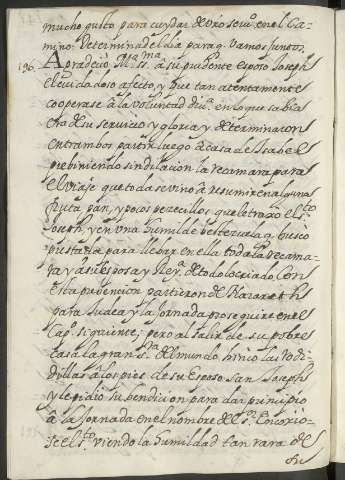 mucho gusto para cuydar de vro seruiº en el Ca-
mino. Determinad el dia para q. vamos juntos.
196. Agradeció Mª SSma. à su prudente esposo Joseph
el cuidadoso afecto, y que tan atentamente
cooperase à la voluntad diuª en lo que sabia
era de su seruicio y gloria; y determinaron
entrambos partir luego à casa de Isabel
prebiniendo sin dilacion la recamara para
el viaje que toda se vino à resumir en alguna
fruta, pan, y pocos pececillos que le trajo el Sto.
Joseph, y en una humilde bestezuela q. busco
prestada para llebar en ella toda la recama-
ra y à su esposa y Reyª de todo lo criado. Con
esta prebencion partieron de Nazareth
para Judea y la Jornada proseguire en el
Capº siguiente; pero al salir de su pobre
casa la gran Sª del mundo hinco las rodi-
dillas à los pies de su Esposo San Joseph
y le pidio su bendicion para dar principio
à la Jornada en el nombre del Sr. Encogio-
se el Sto. viendo la humildad tan rara de
su